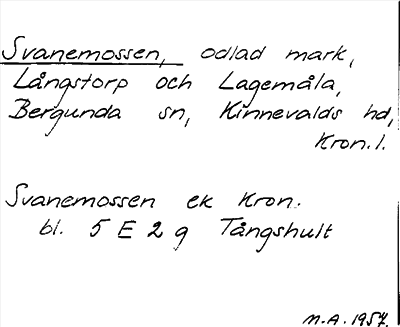 Svanemossen, odlad mark,
Långstorp och Lagemåla,
Bergunda sn, Kinnevalds hd,
Kron. l.
Svanemossen ek Kron.
bl. 5 E 2 g Tångshult
M.A. 1957.